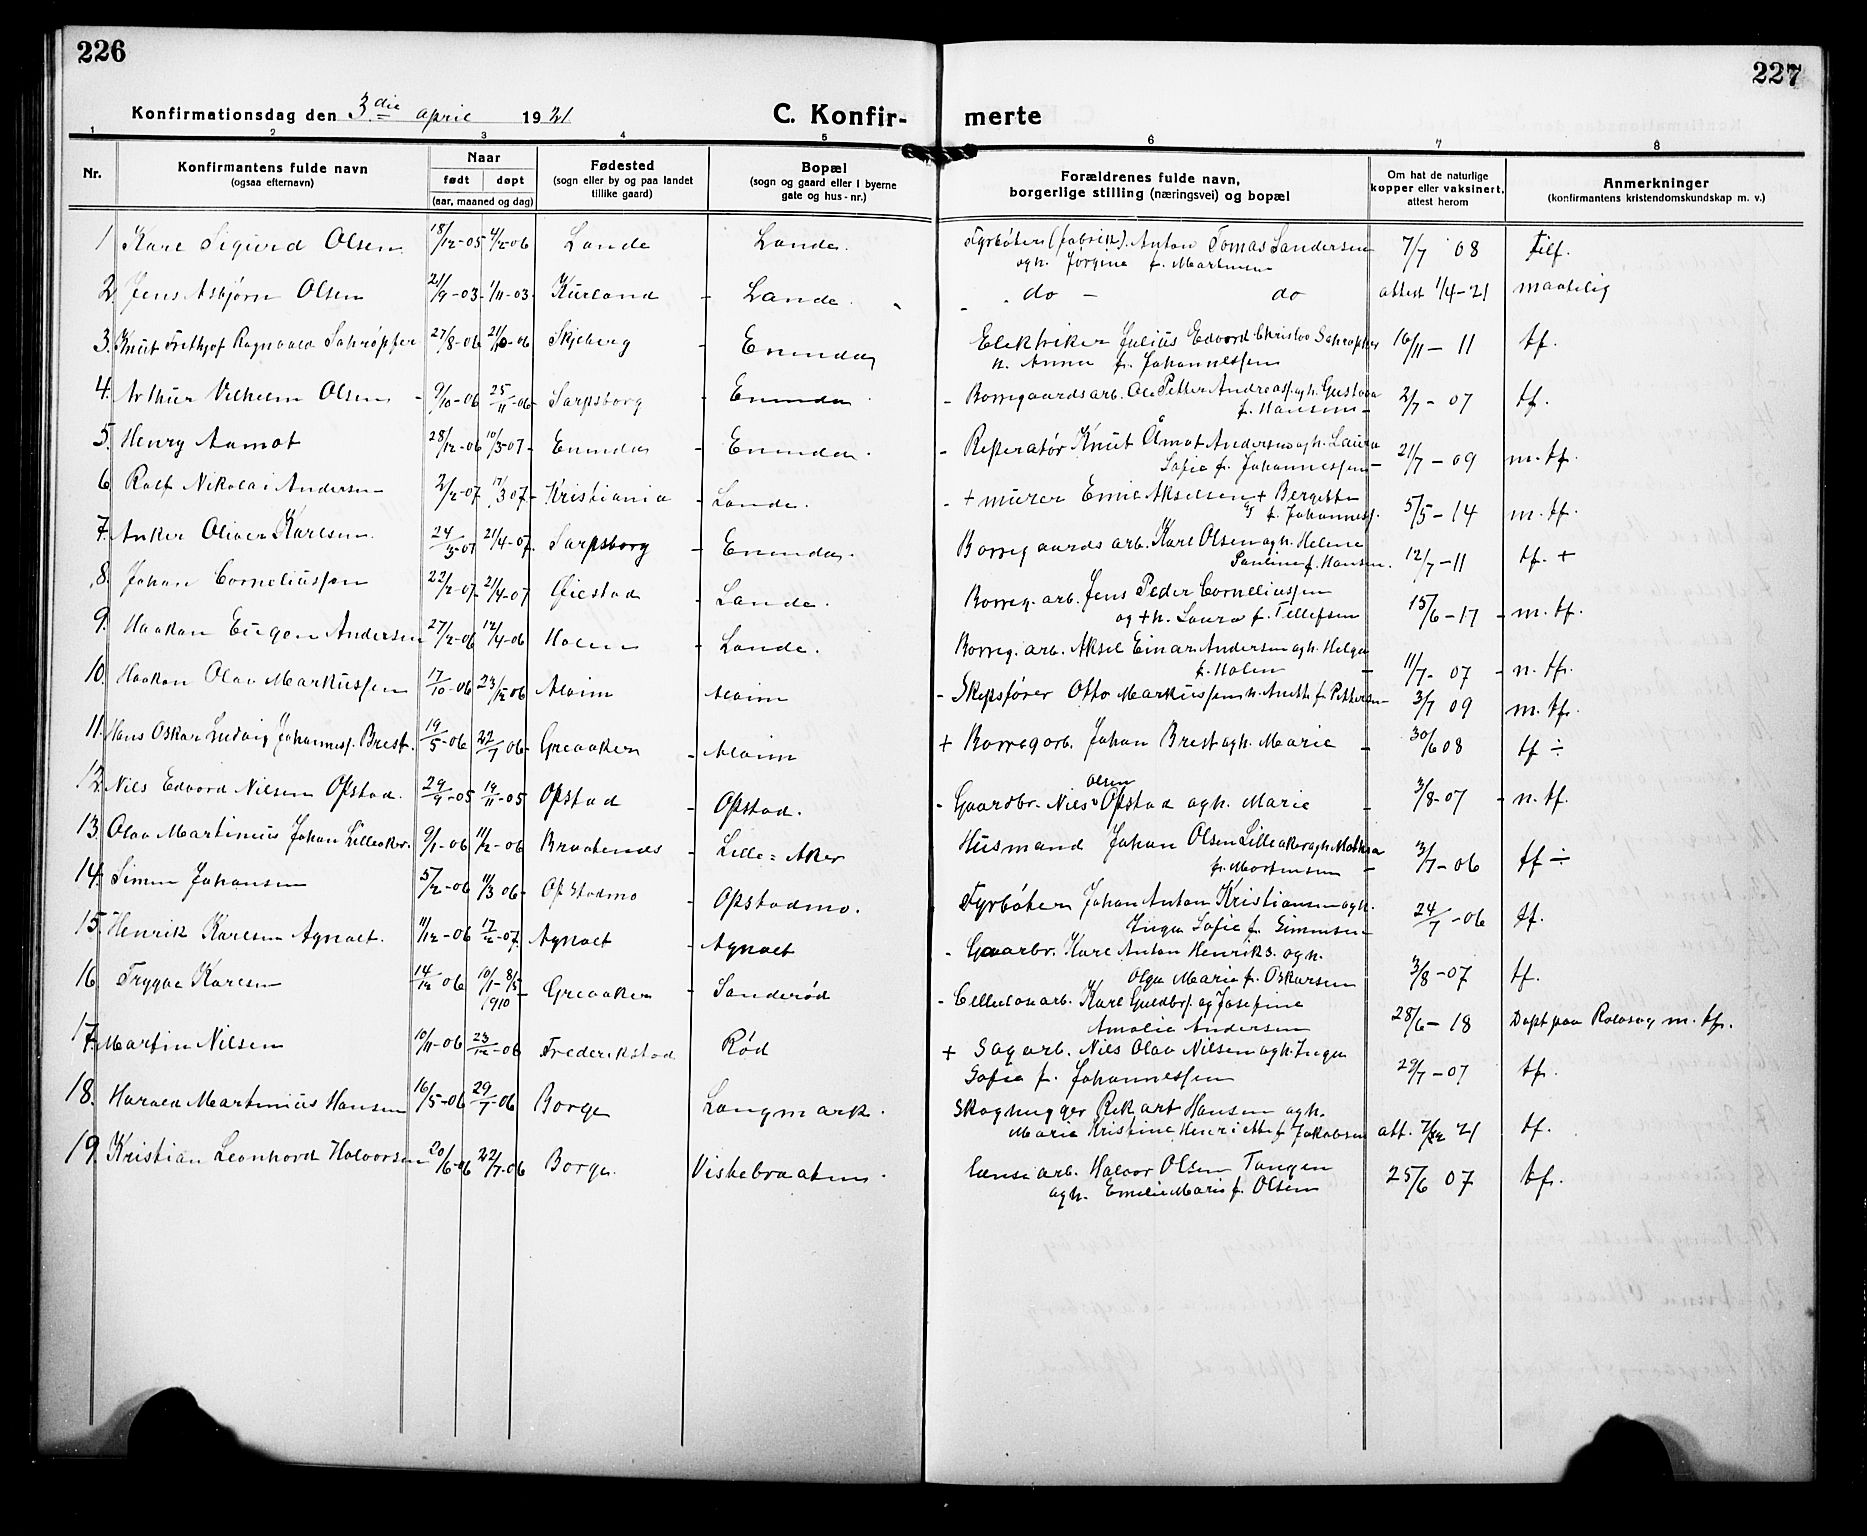 226
227
Konfirmationsdag den 3die april 1921
C. Konfir-
merte
1 2 3 4 5 6 7 8
Nr.
Konfirmantens fulde navn
(ogsaa efternavn)
Naar
født døpt
(aar, maaned og dag)
Fødested
(sogn eller by og paa landet
tillike gaard)
Bopæl
(sogn og gaard eller i byerne
gate og hus-nr.)
Forældrenes fulde navn,
borgerlige stilling (næringsvei) og bopæl
Om hat de naturlige
kopper eller vaksinert,
attest herom
Anmerkninger
(konfirmantens kristendomskundskap m. v.)
1 Kare Sigurd Olsen 18/12-05 4/2-06 Lande Lande. Fyrbøter (fabrik). Anton Tomas Sandersen 7/7 08 tilf.
ogh. Jørgine f. Martinsen
2. Jens Asbjørn Olsen 21/9-03- 1/11-03- Kurland - Lande. do - do attest 1/4-21 maadelig
3. Knut Frithjof Ragnvald Schrøpfer 27/8-06 21/10-06 Skjeberg - Enendas Elektriker Julius Edvard Christov Schrøpfer 16/11-11 tf.
h. Anna f. Johannessen
4. Arthur Vilhelm Olsen - 9/10-06 25/11-06- Sarpsborg - Enendas - Borregaardsarb. Ole Petter Andreas. ogh. Gustava 2/7-07 tf.
f. Hansen -
5. Henry Aamot 28/12-06 10/3-07- Enendas - Enendas. - Reperatør Knut Åmot Andersen ogh. Laura 21/7-09 m. tf.
Sofie f. Johannessen -
6 Rolf Nikolai Andersen - 2/2-07 17/3 07- Kristiania - Lande. - + murer Emil Akselsen + Bergitte 5/5-14 m. tf.
f. Johanness.
7. Anker Oliver Karlsen. 24/3-07 21/4-07. Sarpsborg - Enendas. Borregaards arb. Karl Olsen ogh. Helene 12/7-11 tf. +
Pauline f. Hansen.
8. Johan Corneliussen 22/2-07- 21/4-07 Øiestad - Lande. Borreg. arb. Jens Peder Corneliussen 15/6-17 - m. tf.
og + h. Laura f. Tellefsen
9. Haakon Eugen Andersen 27/2-06 12/4-06 Holen - Lande. Borreg. arb. Aksel Einar Andersen ogh. Helga 11/7- 07 - n. tf.
f. Holen -
10. Haakon Olav Markussen 17/10-06 23/12 06 Alvim - Alvim - Skipsfører Otto Markussen h. Anette f. Pettersen - 3/7 09 m. tf.
11. Hans Oskar Ludvig Johanness. Brest. 19/5-06 22/7 06- Greaaker - Alvim + Borregarb. Johan Brest ogh. Marie - 30/6 08 tf ÷
12. Nils Edvard Nilsen Opstad. 29/9-05 19/11-05 Opstad - Opstad. - Gaardbr. Nils Olsen Opstad ogh. Marie - 3/8-07 - n. tf.
13. Olav Martinius Johan Lilleaker. 9/1-06 11/2-06 Braatenes - Lille=Aker Husmand Johan Olsen Lilleaker ogh. 3/7-06 tf ÷
f. Mortensen -
14. Simen Johansen 5/2-06 11/3 06- Opstadmo - Opstadmo. Fyrbøter Johan Anton Kristiansen ogh. 24/7-06 tf.
Inga Sofie f. Simensen
15. Henrik Karlsen Agnalt. 11/12-06 17/2-07. Agnalt - Agnalt - Gaarbr. Karl Anton Henriks. ogh. 3/8-07 tf.
Olga Marie f. Oskarsen
16 Trygve Karlsen 14/12 06 10/1-8/5 1910 - Greaaker - Sanderød - Celluloarb. Karl Guldbr. og Josefine 28/6-18 Døpt paa Rolvsøy m. tf.
Amalie Andersen
17. Martin Nilsen 10/11-06 23/12-06 Frederikstad Rød + Sagarb. Nils Olav Nilsen ogh. Inga 29/7-07 tf.
Sofie f. Johannessen
18. Harald Martinius Hansen 16/5-06 29/7-06 Borge Langmark. Skoghugger Rikart Hansen ogh. att. 21 tf.
Marie Kristine Henriette f. Jakobsen
19. Kristian Leonhard Halvorsen 20/6-06 22/7-06 Borge. Viskebraaten. Lænsearb. Halvor Olsen Tangen 25/6 07 tf.
ogh. Emilie Marie f. Olsen